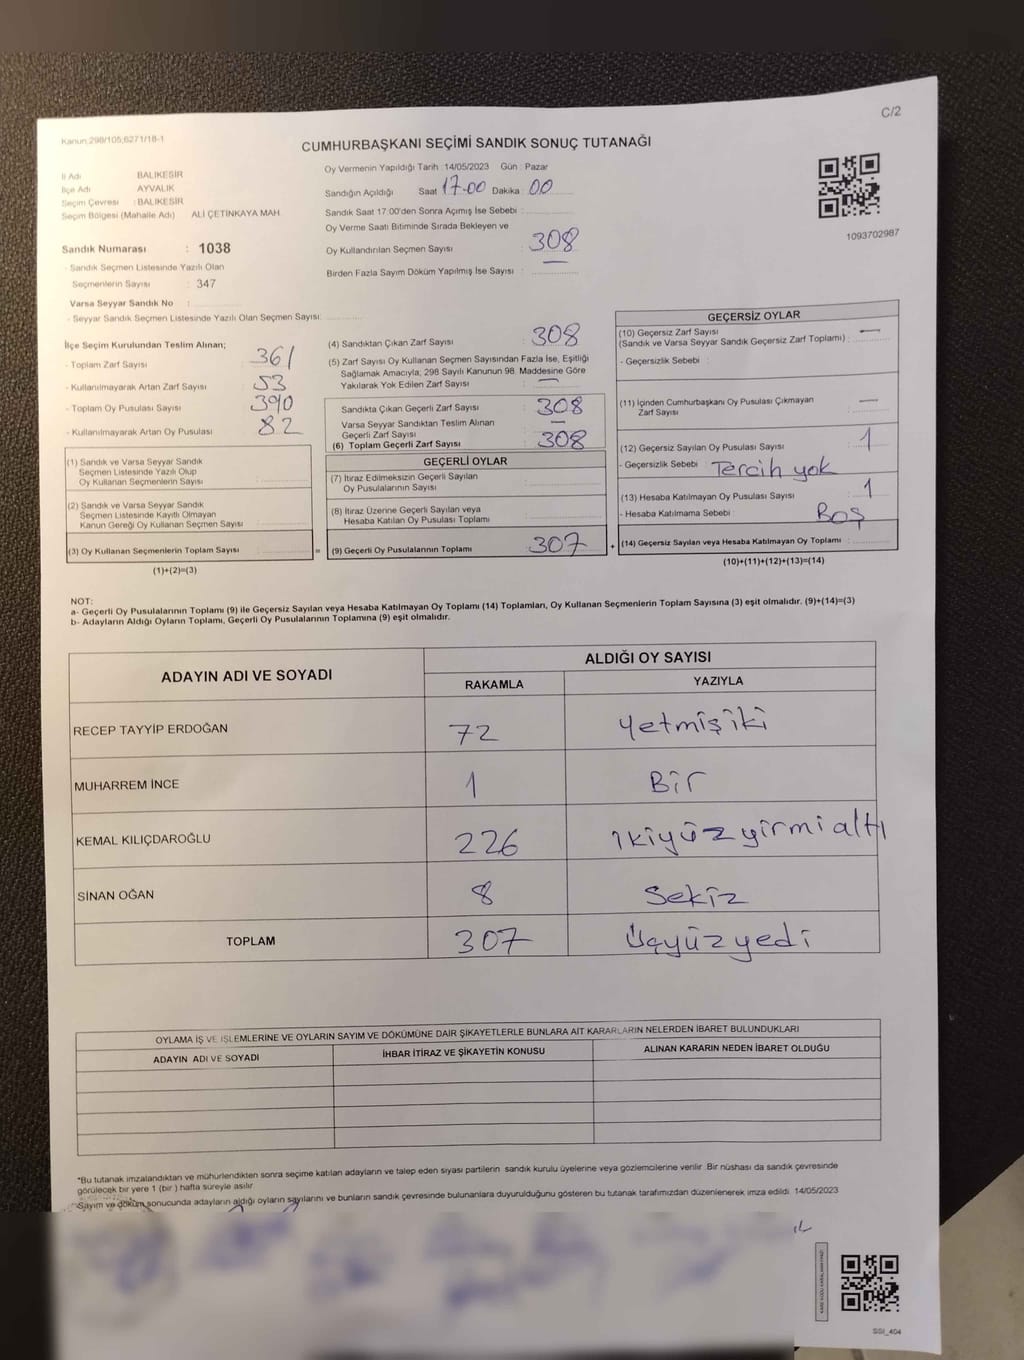 C/2
Kanun;298/105;6271/18-1
CUMHURBAŞKANI SEÇİMİ SANDIK SONUÇ TUTANAĞI
İl Adı BALIKESİR
İlçe Adı AYVALIK
Seçim Çevresi : BALIKESİR
Seçim Bölgesi (Mahalle Adı) ALİ ÇETİNKAYA MAH.
Sandık Numarası : 1038
- Sandık Seçmen Listesinde Yazılı Olan
Seçmenlerin Sayısı : 347
Varsa Seyyar Sandık No :
- Seyyar Sandık Seçmen Listesinde Yazılı Olan Seçmen Sayısı:
Oy Vermenin Yapıldığı Tarih : 14/05/2023 Gün : Pazar
Sandığın Açıldığı Saat 17.00 Dakika : 00
Sandık Saat 17:00'den Sonra Açılmış İse Sebebi :
Oy Verme Saati Bitiminde Sırada Bekleyen ve
Oy Kullandırılan Seçmen Sayısı : 308
Birden Fazla Sayım Döküm Yapılmış İse Sayısı :
1093702987
İlçe Seçim Kurulundan Teslim Alınan;
- Toplam Zarf Sayısı : 361
- Kullanılmayarak Artan Zarf Sayısı : 53
- Toplam Oy Pusulası Sayısı : 390
- Kullanılmayarak Artan Oy Pusulası : 82
(1) Sandık ve Varsa Seyyar Sandık
Seçmen Listesinde Yazılı Olup
Oy Kullanan Seçmenlerin Sayısı :
(2) Sandık ve Varsa Seyyar Sandık
Seçmen Listesinde Kayıtlı Olmayan
Kanun Gereği Oy Kullanan Seçmen Sayısı :
(3) Oy Kullanan Seçmenlerin Toplam Sayısı : =
(1)+(2)=(3)
(4) Sandıktan Çıkan Zarf Sayısı : 308
(5) Zarf Sayısı Oy Kullanan Seçmen Sayısından Fazla İse, Eşitliği
Sağlamak Amacıyla; 298 Sayılı Kanunun 98. Maddesine Göre
Yakılarak Yok Edilen Zarf Sayısı : —
Sandıkta Çıkan Geçerli Zarf Sayısı : 308
Varsa Seyyar Sandıktan Teslim Alınan
Geçerli Zarf Sayısı : —
(6) Toplam Geçerli Zarf Sayısı : 308
GEÇERLİ OYLAR
(7) İtiraz Edilmeksizin Geçerli Sayılan
Oy Pusulalarının Sayısı :
(8) İtiraz Üzerine Geçerli Sayılan veya
Hesaba Katılan Oy Pusulası Toplamı :
(9) Geçerli Oy Pusulalarının Toplamı : 307 +
GEÇERSİZ OYLAR
(10) Geçersiz Zarf Sayısı
(Sandık ve Varsa Seyyar Sandık Geçersiz Zarf Toplamı) : —
- Geçersizlik Sebebi :
(11) İçinden Cumhurbaşkanı Oy Pusulası Çıkmayan
Zarf Sayısı : —
(12) Geçersiz Sayılan Oy Pusulası Sayısı : 1
- Geçersizlik Sebebi : Tercih yok
(13) Hesaba Katılmayan Oy Pusulası Sayısı : 1
- Hesaba Katılmama Sebebi : Boş
(14) Geçersiz Sayılan veya Hesaba Katılmayan Oy Toplamı :
(10)+(11)+(12)+(13)=(14)
NOT:
a- Geçerli Oy Pusulalarının Toplamı (9) ile Geçersiz Sayılan veya Hesaba Katılmayan Oy Toplamı (14) Toplamları, Oy Kullanan Seçmenlerin Toplam Sayısına (3) eşit olmalıdır. (9)+(14)=(3)
b- Adayların Aldığı Oyların Toplamı, Geçerli Oy Pusulalarının Toplamına (9) eşit olmalıdır.
ADAYIN ADI VE SOYADI ALDIĞI OY SAYISI
RAKAMLA YAZIYLA
RECEP TAYYİP ERDOĞAN 72 Yetmişiki
MUHARREM İNCE 1 Bir
KEMAL KILIÇDAROĞLU 226 ikiyüzyirmialtı
SİNAN OĞAN 8 Sekiz
TOPLAM 307 Üçyüzyedi
OYLAMA İŞ VE İŞLEMLERİNE VE OYLARIN SAYIM VE DÖKÜMÜNE DAİR ŞİKAYETLERLE BUNLARA AİT KARARLARIN NELERDEN İBARET BULUNDUKLARI
ADAYIN ADI VE SOYADI İHBAR İTİRAZ VE ŞİKAYETİN KONUSU ALINAN KARARIN NEDEN İBARET OLDUĞU
*Bu tutanak imzalandıktan ve mühürlendikten sonra seçime katılan adayların ve talep eden siyasi partilerin sandık kurulu üyelerine veya gözlemcilerine verilir. Bir nüshası da sandık çevresinde
görülecek bir yere 1 (bir) hafta süreyle asılır.
*Sayım ve döküm sonucunda adayların aldığı oyların sayılarını ve bunların sandık çevresinde bulunanlara duyurulduğunu gösteren bu tutanak tarafımızdan düzenlenerek imza edildi. 14/05/2023
SSI_404